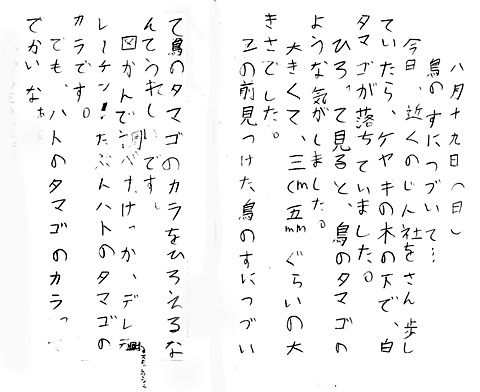 八月十九日(日)
鳥のすにつづいて…
今日、近くのじん社をさん歩し
ていたら、ケヤキの木の下で、白
タマゴが落ちていました。
ひろって見ると、鳥のタマゴの
ような気がしました。
大きくて、三cm五mmぐらいの大
きさでした。
この前見つけた鳥のすにつづい
て鳥のタマゴのカラをひろえるな
んてうれしいです。
図かんで調べたけっか、デレデ
レーチン！たぶんハトのタマゴの
カラです。
でも、ハトのタマゴのカラって
でかいなぁ。